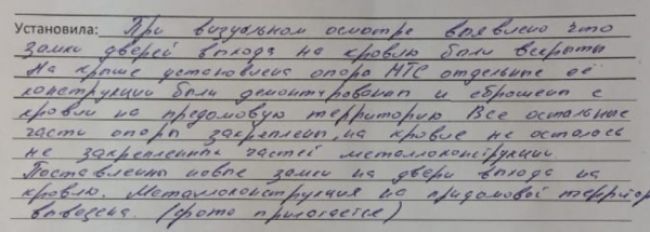 Установила: При визуальном осмотре выявлено что
замки дверей выхода на кровлю были вскрыты
На крыше установлена опора МТС отдельные её
конструкции были демонтированы и сброшены с
кровли на предомовую территорию Все остальные
части опоры закреплены, на кровле не осталось
не закрепленных частей металлоконструкции
Поставлены новые замки на двери выхода на
кровлю. Металлоконструкция на придомовой территор
вывезена. (фото прилагается)